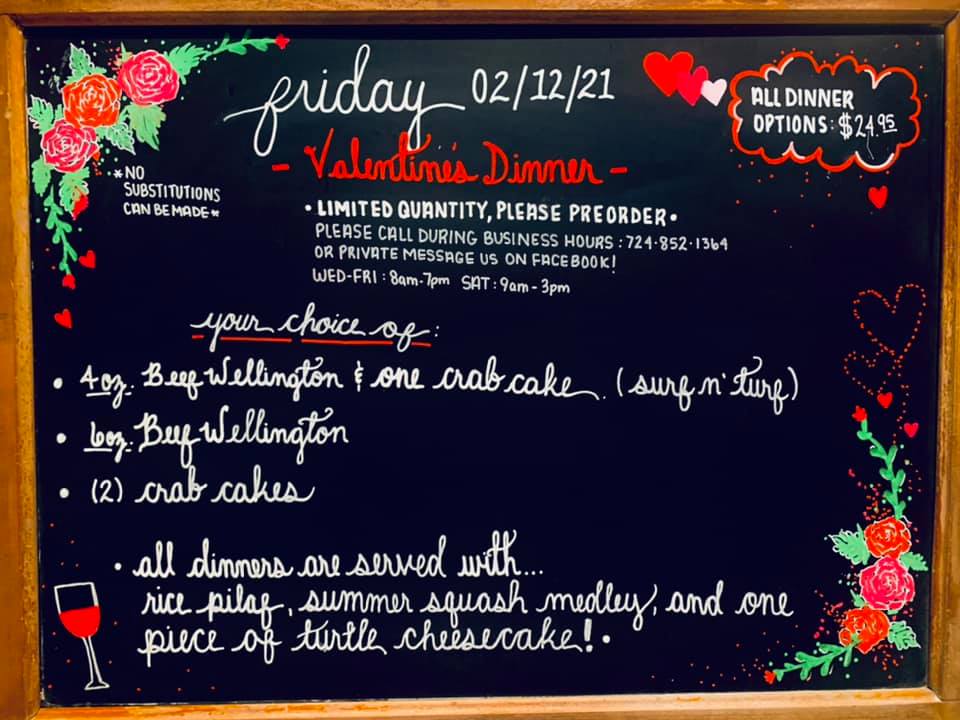 friday 02/12/21
ALL DINNER
OPTIONS: $24.95
- Valentine's Dinner -
*NO
SUBSTITUTIONS
CAN BE MADE*
• LIMITED QUANTITY, PLEASE PREORDER •
PLEASE CALL DURING BUSINESS HOURS: 724-852-1364
OR PRIVATE MESSAGE US ON FACEBOOK!
WED-FRI: 8am-7pm SAT: 9am-3pm
your choice of:
• 4oz. Beef Wellington & one crab cake. (surf n' turf)
• 6oz. Beef Wellington
• (2) crab cakes
• all dinners are served with...
rice pilaf, summer squash medley, and one
piece of turtle cheesecake! •